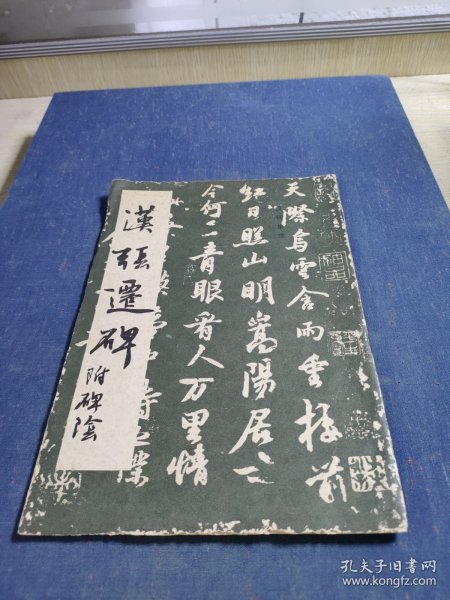 漢張遷碑
附碑陰
天際烏雲含雨重樓前
紅日照山明嵩陽居二
今何二青眼看人万里情
孔夫子旧书网
www.kongfz.com